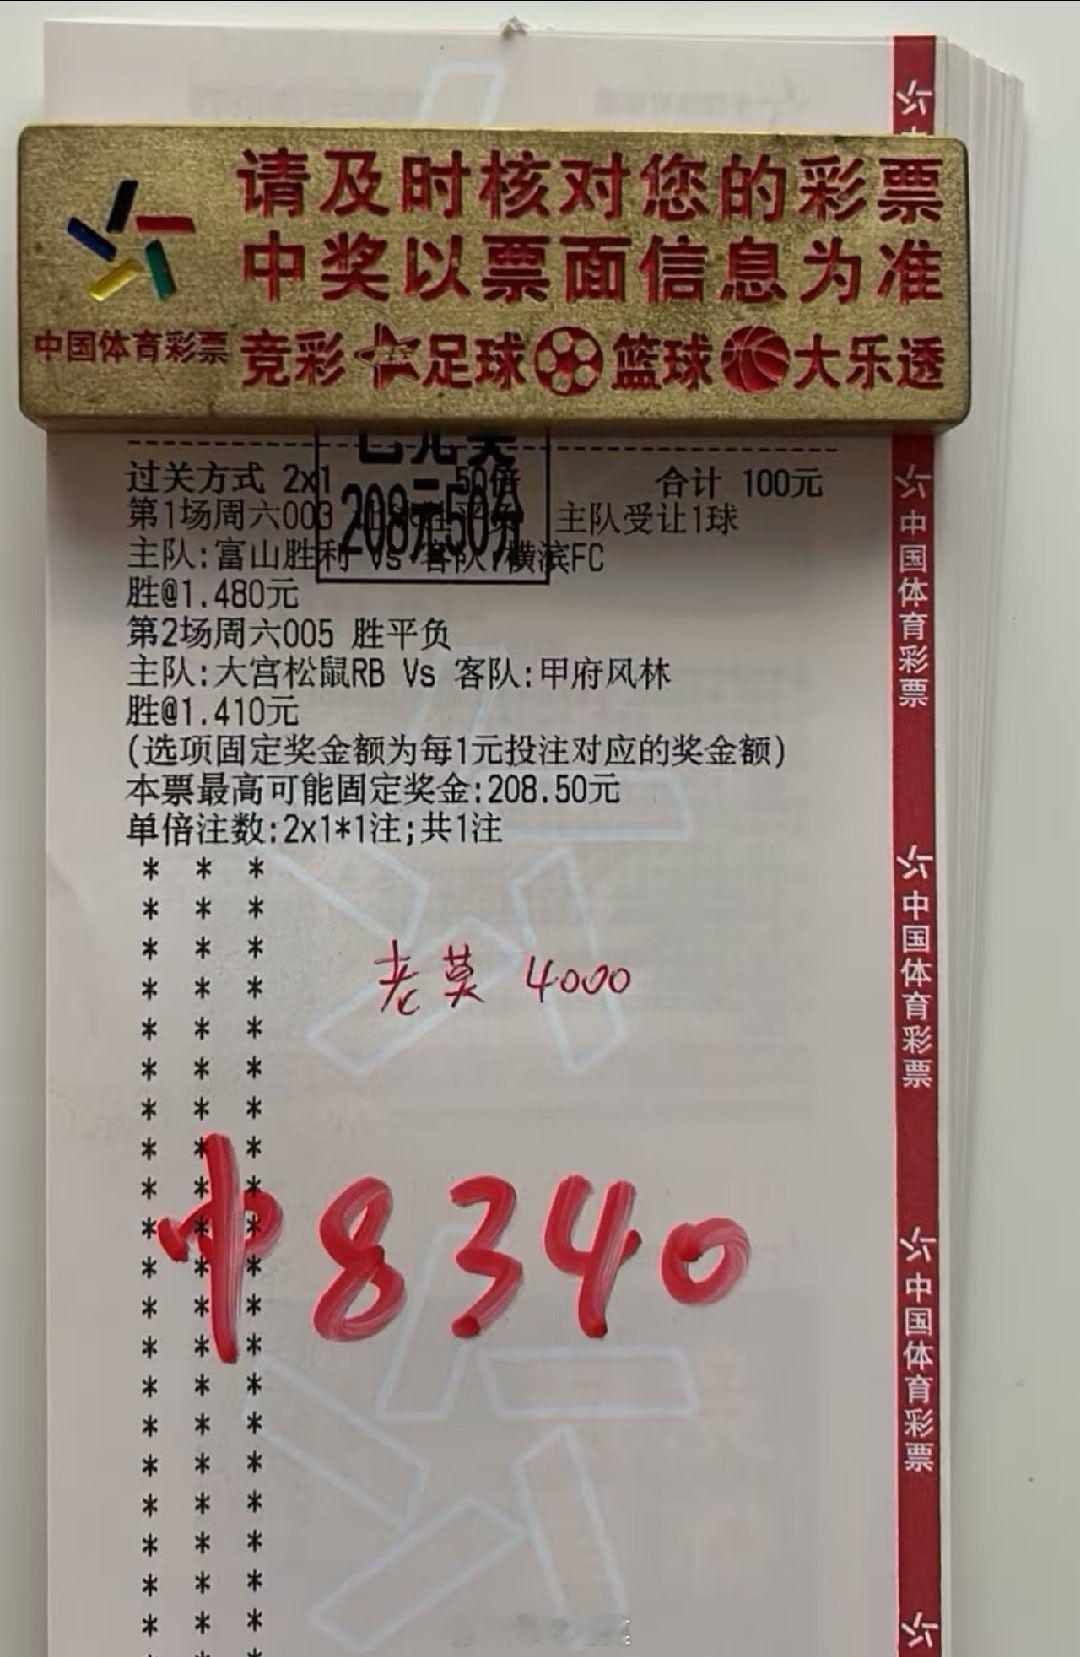 请及时核对您的彩票
中奖以票面信息为准
中国体育彩票
竞彩 足球 篮球 大乐透
过关方式 2x1 50倍 合计 100元
208元50分
第1场周六003 主队受让1球
主队:富山胜利 Vs 客队:横滨FC
胜@1.480元
第2场周六005 胜平负
主队:大宫松鼠RB Vs 客队:甲府风林
胜@1.410元
(选项固定奖金额为每1元投注对应的奖金额)
本票最高可能固定奖金:208.50元
单倍注数:2x1*1注;共1注
老莫 4000
中8340
中国体育彩票
中国体育彩票
中国体育彩票